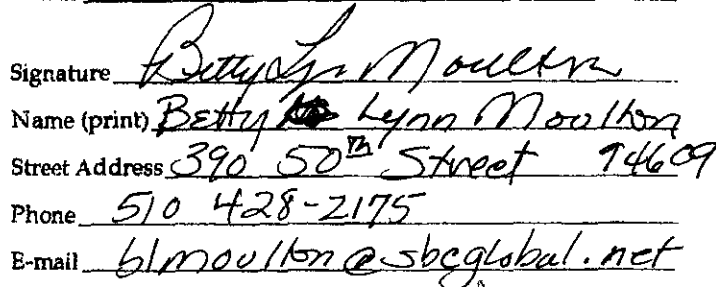 Signature Betty Lynn Moulton
Name (print) Betty Lynn Moulton
Street Address 390 50th Street 94609
Phone 510 428-2175
E-mail blmoulton@sbcglobal.net